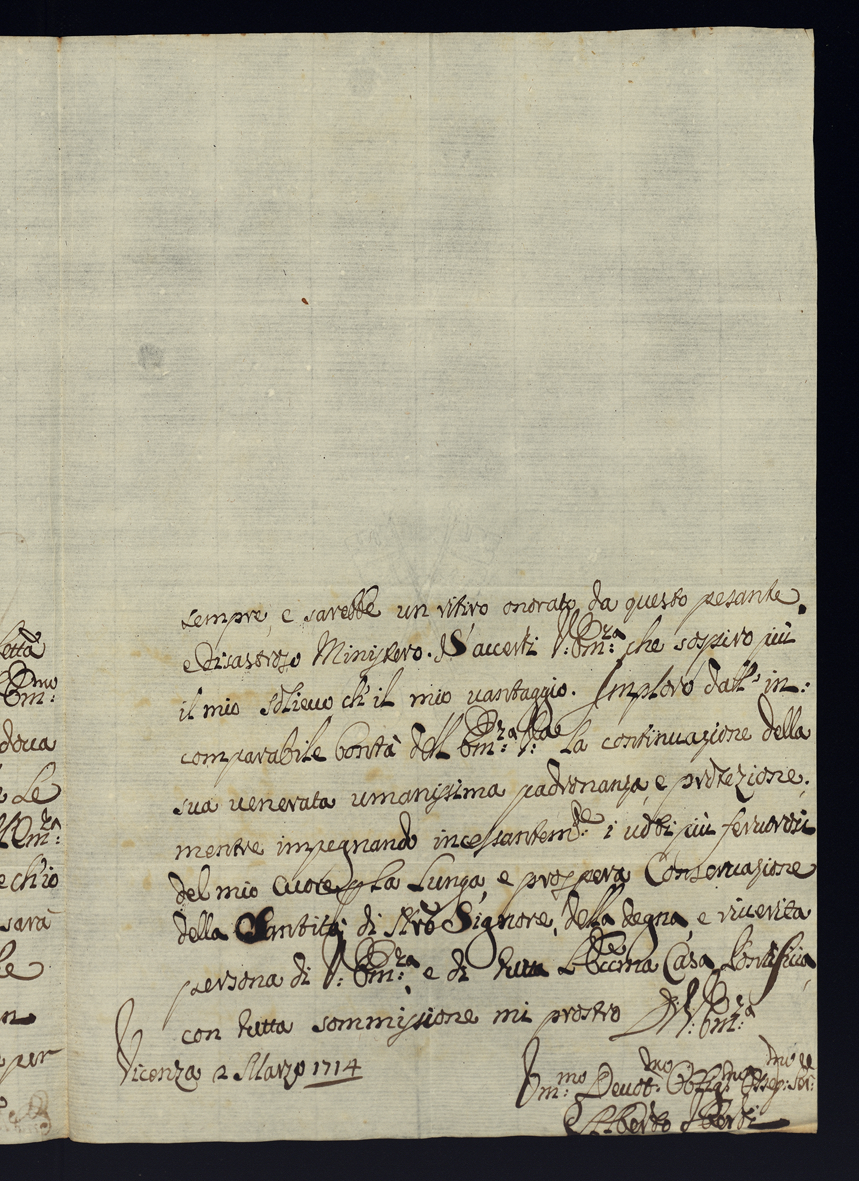 sempre, e sarebbe un ritiro onorato da questo pesante,
e disastroso Ministero. S'accerti V: Em:za che sospiro più
il mio solievo ch'il mio vantaggio. Imploro dall'in:
comparabile bontà dell' Em:za V:a la continuazione della
sua venerata umanissima padronanza, e protezione;
mentre impegnando incessantem:te i voti più fervorosi
del mio cuore la lunga, e prospera Conservazione
della Santità di Nr̃o Signore, della degna, e riverita
persona di V: Em:za e di tutta Casa Pontificia,
con tutta sommissione mi prostro
D V: Em:za
Vicenza 2 Marzo 1714
Um:mo Devot:mo Obblig:mo Osseq: Ser:
Alberto
etta
Em:mo
dova
Le
Em:za
e ch'io
sarà
le
per